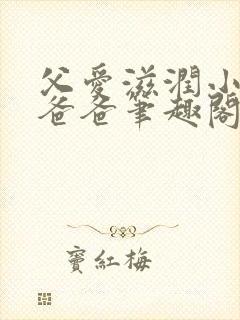 父愛滋潤小
爸爸筆趣閣
竇紅梅